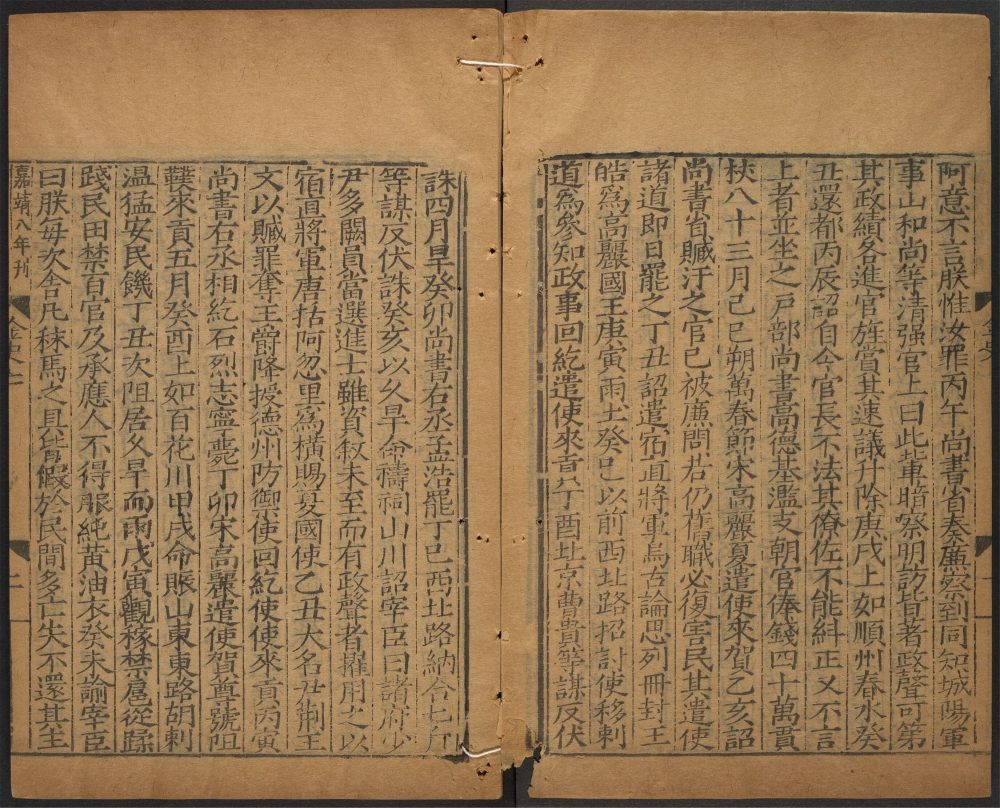 阿意不言朕惟汝罪丙午尚書省奏廉察到同知城陽軍
事山和尚等清强官上曰此輩暗察明訪皆著政聲可第
其政績各進官旌賞其速議升除庚戌上如順州春水癸
丑還都丙辰詔自今官長不法其僚佐不能糾正又不言
上者並坐之戸部尚書高德基濫支朝官俸錢四十萬貫
杖八十三月己巳朔萬春節宋高麗夏遣使來賀乙亥詔
尚書省贓汙之官已被廉問若仍舊職必復害民其遣使
諸道即日罷之丁丑詔遣宿直將軍烏古論思列冊封王
皓爲高麗國王庚寅雨土癸巳以前西北路招討使移剌
道爲參知政事回紇遣使來貢丁酉北京曹貴等謀反伏
誅四月旱癸卯尚書右丞孟浩罷丁巳西北路納合七斤
等謀反伏誅癸亥以久旱命禱祠山川詔宰臣曰諸府少
尹多闕員當選進士雖資叙未至而有政聲者擢用之以
宿直將軍唐括阿忽里爲橫賜夏國使乙丑大名尹荆王
文以贓罪奪王爵降授德州防禦使回紇使使來貢丙寅
尚書右丞相紇石烈志寧薨丁卯宋高麗遣使賀尊號阻
䪁來貢五月癸酉上如百花川甲戌命賑山東東路胡剌
温猛安民饑丁丑次阻居久旱而雨戊寅觀稼禁扈從蹂
踐民田禁百官及承應人不得服純黃油衣癸未諭宰臣
曰朕每次舍凡秣馬之具皆假於民間多亡失不還其主
嘉靖八年刊
金史
二